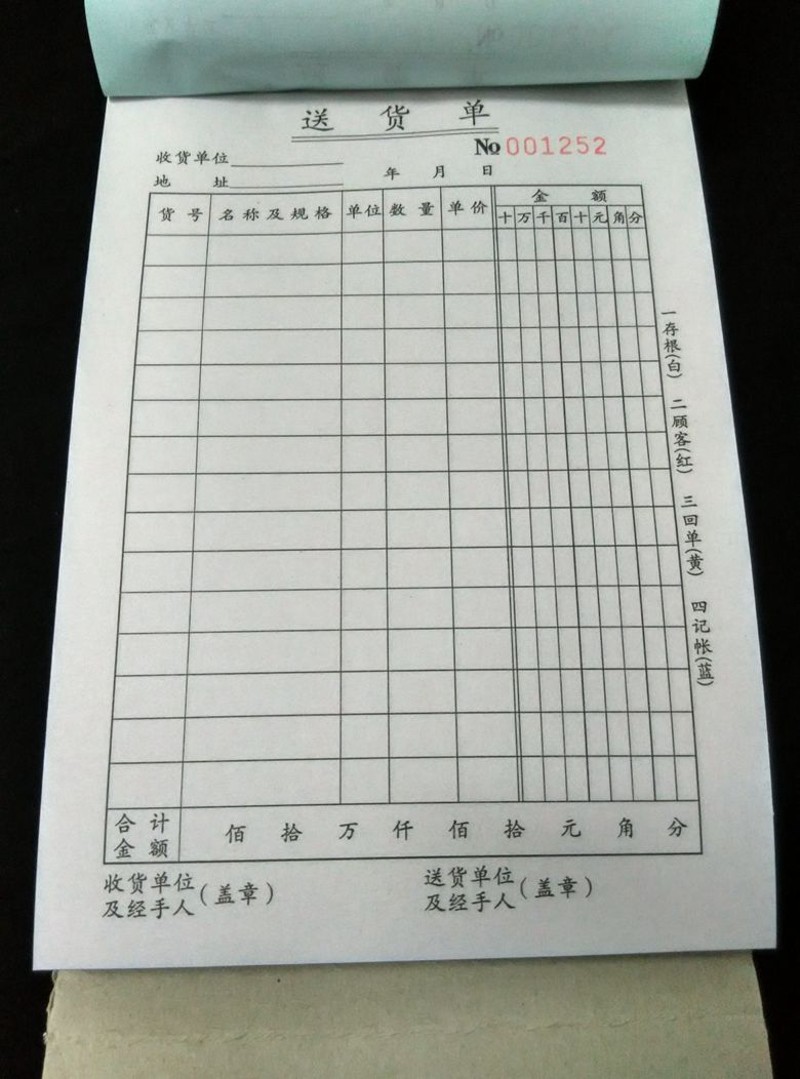 送 货 单
No 001252
收货单位
地 址 年 月 日
货 号 名称及规格 单位 数 量 单 价 金 额
十 万 千 百 十 元 角 分
一存根(白) 二顾客(红) 三回单(黄) 四记帐(蓝)
合 计
金 额
佰 拾 万 仟 佰 拾 元 角 分
收货单位
及经手人
(盖章)
送货单位
及经手人
(盖章)